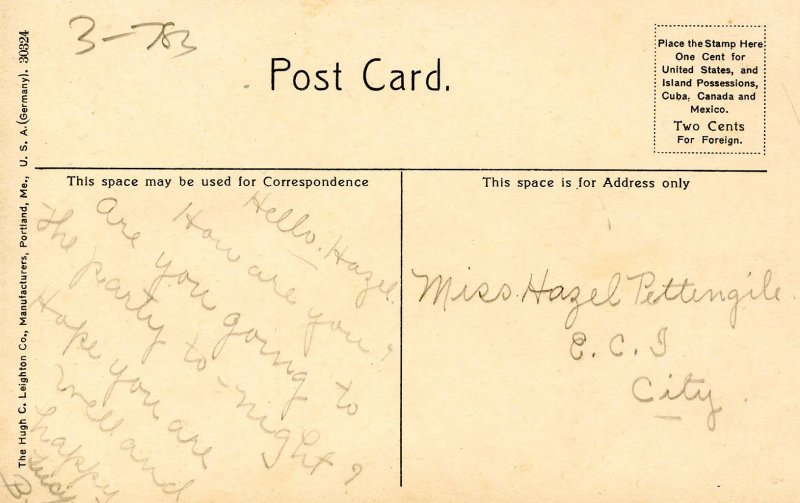 3-783
Post Card.
Place the Stamp Here
One Cent for
United States, and
Island Possessions,
Cuba, Canada and
Mexico.
Two Cents
For Foreign.
The Hugh C. Leighton Co., Manufacturers, Portland, Me., U. S. A. (Germany). 30324
This space may be used for Correspondence
Hello. Hazel.
How are you?
Are you going to
the party to-night?
Hope you are
well and
happy
Lucy
B.
This space is for Address only
Miss. Hazel Pettengile.
E. C. I
City